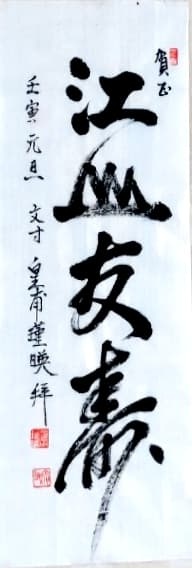 賀正
江山友壽
壬寅元旦 文才 皇甫蓮暎拜